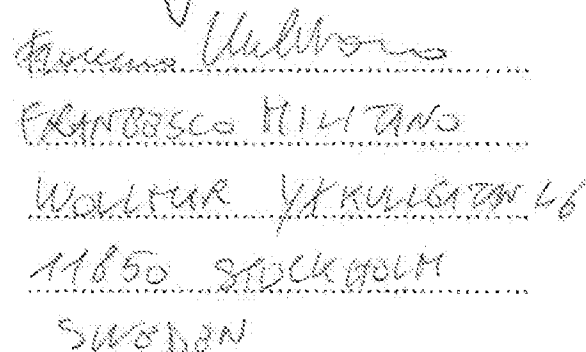 FRANCESCO MILITANO
WOLLMAR YXKULLSGATAN 46
11850 STOCKHOLM
SWEDEN